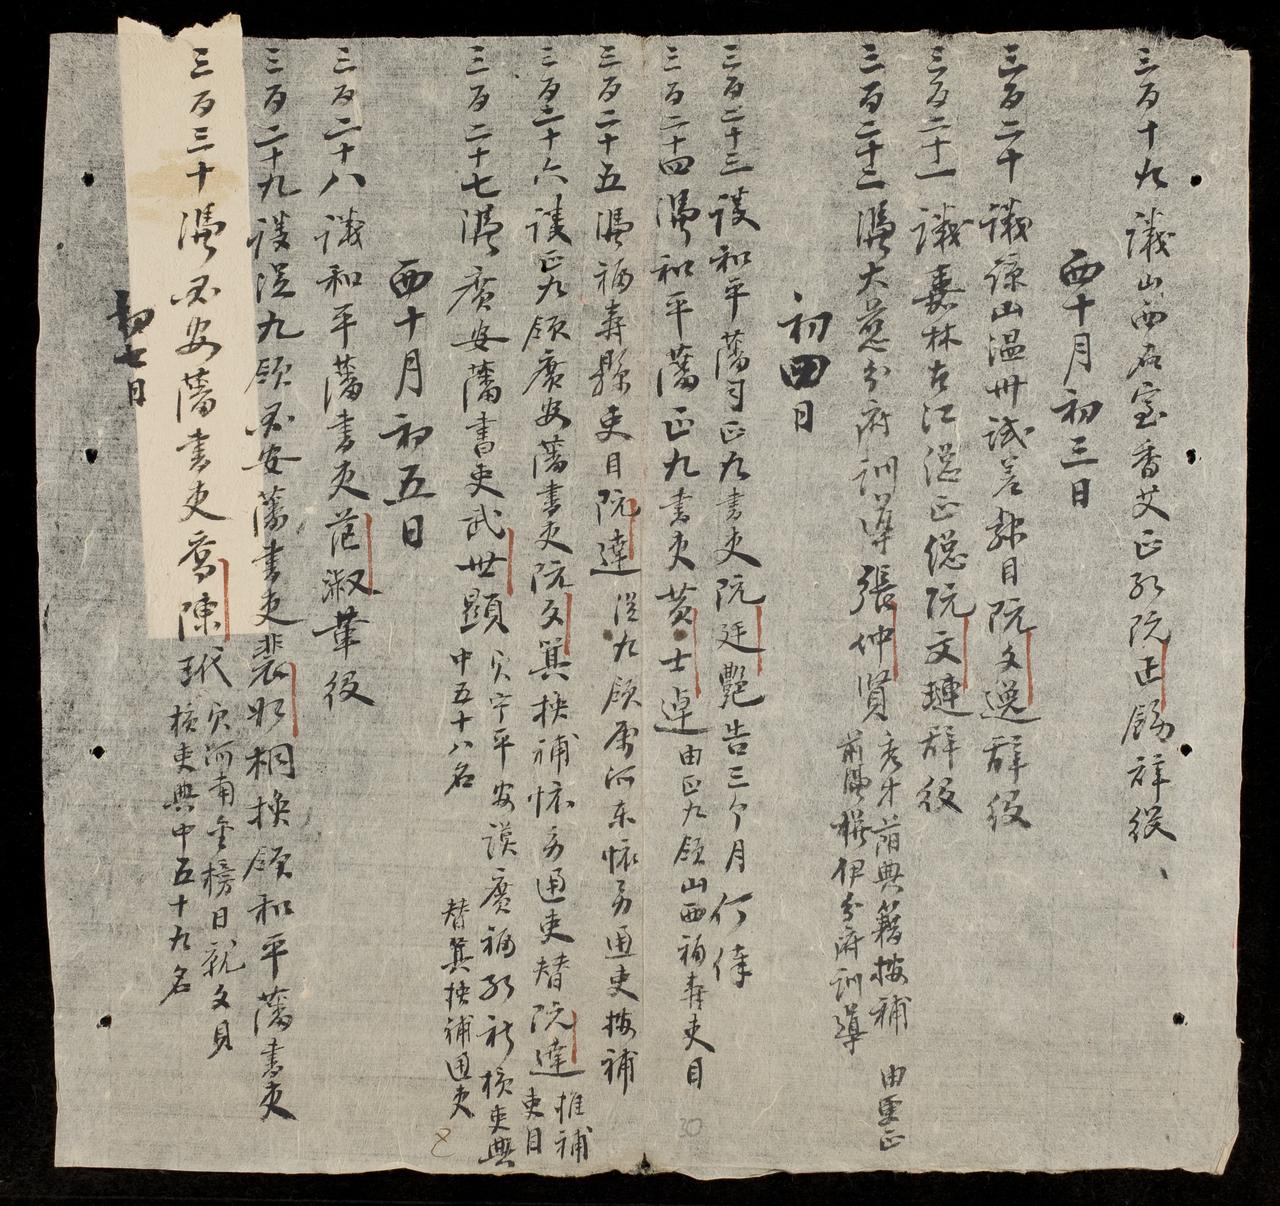 三百十九議山西石室香艾正總阮正錫辞役
西十月初三日
三百二十議諒山温州試差隸目阮文逸辞役
三百二十一議嘉林古江總正總阮文璉辞役
三百二十二憑大慈分府訓導張仲賢
秀才蔭典籍撥補 由里正
前署権伊分府訓導
初四日
三百二十三護和平藩司正九書吏阮廷艶告三个月
三百二十四憑和平藩正九書吏黄士卓由正九領山西福寿吏目
三百二十五憑福寿縣吏目阮達從九領原河東懐方通吏撥補
三百二十六護正九領廣安藩書吏阮文箕抉補懐方通吏替阮達推補吏目
三百二十七憑廣安藩書吏武世顕
貫寧平安謨廣福總社檢吏典
中五十八名 替箕抉補通吏
西十月初五日
三百二十八議和平藩書吏范淑葷役
三百二十九護從九領安藩書吏裴桐換領和平藩書吏
三百三十憑安藩書吏喬陳玳
貫河南金榜日就文貝
檢吏典中五十九名
初七日
30